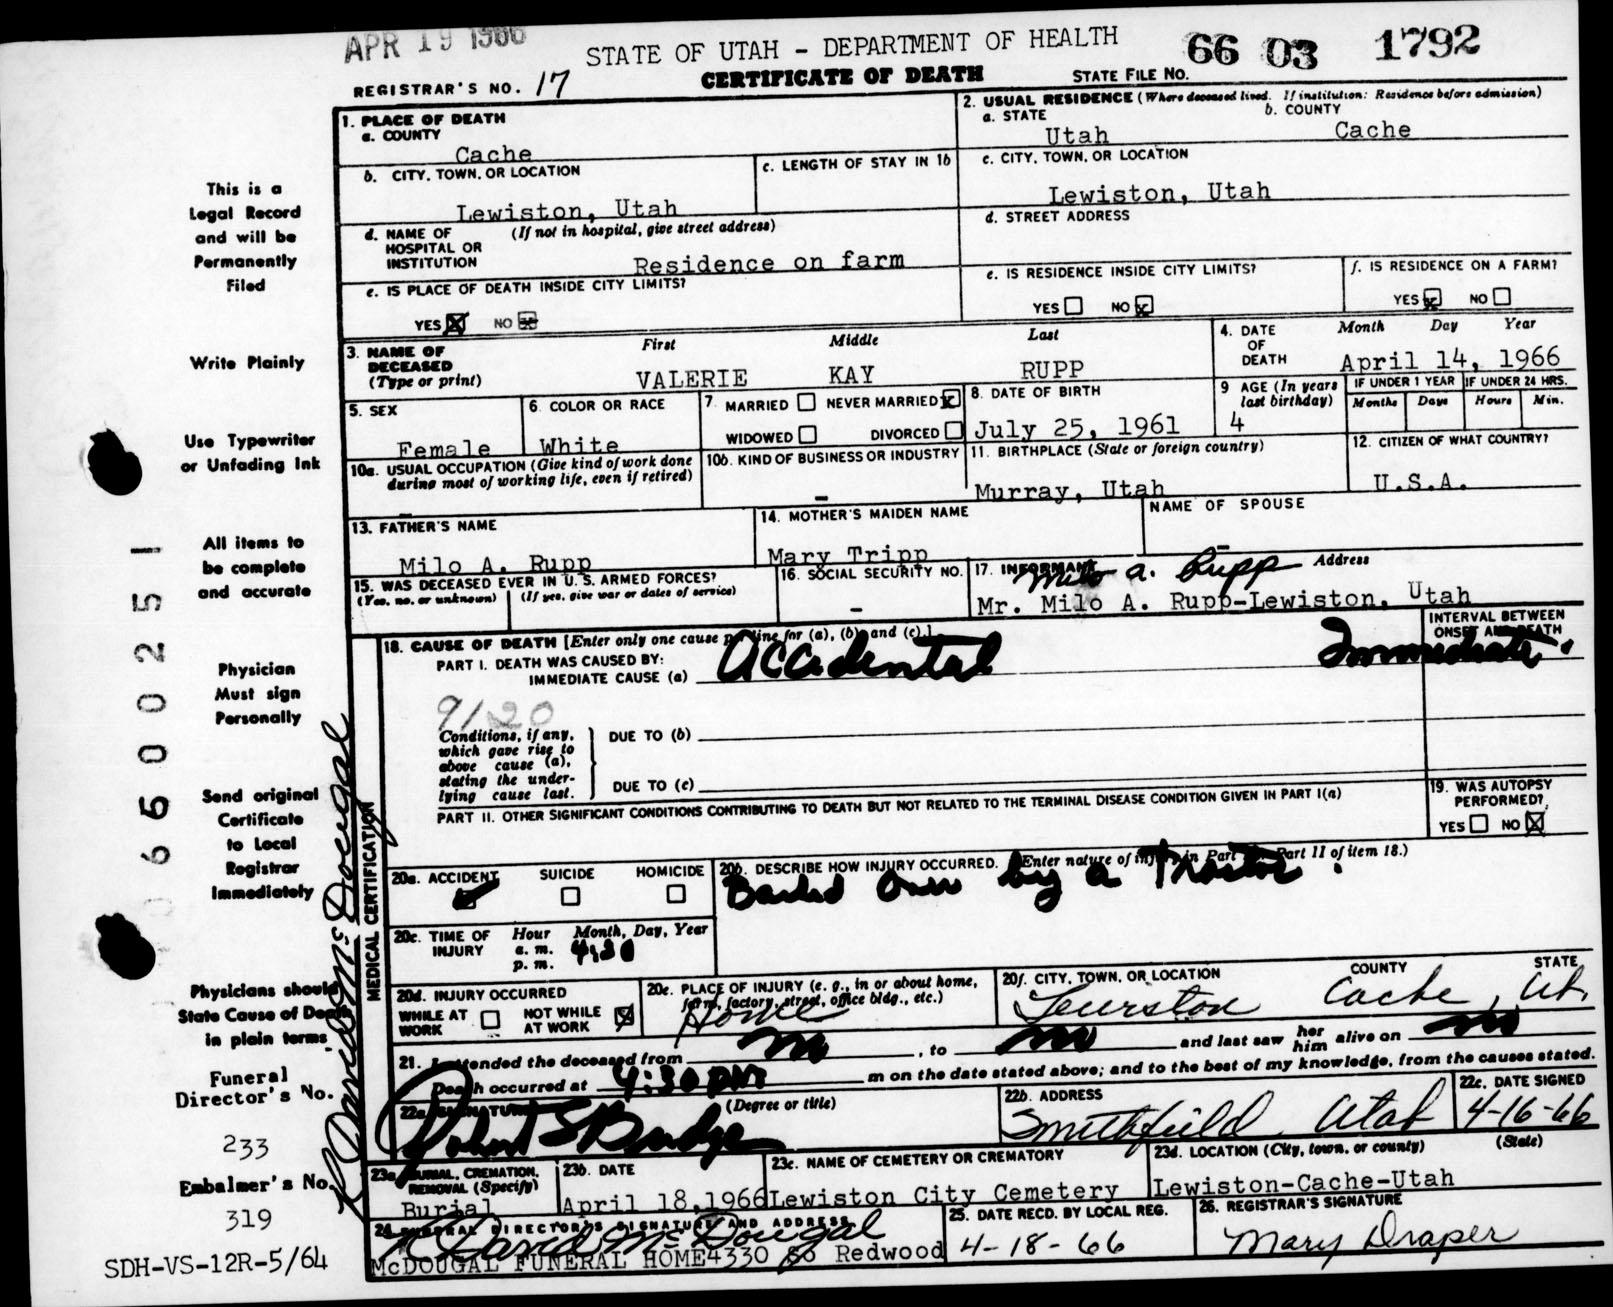 APR 19 1966
STATE OF UTAH - DEPARTMENT OF HEALTH
66 03 1792
REGISTRAR'S NO. 17
CERTIFICATE OF DEATH
STATE FILE NO.
1. PLACE OF DEATH
a. COUNTY
Cache
2. USUAL RESIDENCE (Where deceased lived. If institution: Residence before admission)
a. STATE
b. COUNTY
Utah
Cache
b. CITY, TOWN, OR LOCATION
Lewiston, Utah
c. LENGTH OF STAY IN 1b
c. CITY, TOWN, OR LOCATION
Lewiston, Utah
d. NAME OF HOSPITAL OR INSTITUTION
(If not in hospital, give street address)
Residence on farm
d. STREET ADDRESS
e. IS PLACE OF DEATH INSIDE CITY LIMITS?
YES NO
e. IS RESIDENCE INSIDE CITY LIMITS?
YES NO
f. IS RESIDENCE ON A FARM?
YES NO
3. NAME OF DECEASED
(Type or print)
First Middle Last
VALERIE KAY RUPP
4. DATE OF DEATH
Month Day Year
April 14, 1966
5. SEX
Female
6. COLOR OR RACE
White
7. MARRIED NEVER MARRIED
WIDOWED DIVORCED
8. DATE OF BIRTH
July 25, 1961
9 AGE (In years last birthday)
4
IF UNDER 1 YEAR
Months Days
IF UNDER 24 HRS.
Hours Min.
10a. USUAL OCCUPATION (Give kind of work done during most of working life, even if retired)
-
10b. KIND OF BUSINESS OR INDUSTRY
-
11. BIRTHPLACE (State or foreign country)
Murray, Utah
12. CITIZEN OF WHAT COUNTRY?
U.S.A.
13. FATHER'S NAME
Milo A. Rupp
14. MOTHER'S MAIDEN NAME
Mary Tripp
NAME OF SPOUSE
-
15. WAS DECEASED EVER IN U.S. ARMED FORCES?
(Yes, no, or unknown) (If yes, give war or dates of service)
16. SOCIAL SECURITY NO.
-
17. INFORMANT Address
Milo A. Rupp
Mr. Milo A. Rupp-Lewiston, Utah
18. CAUSE OF DEATH [Enter only one cause per line for (a), (b), and (c).]
INTERVAL BETWEEN ONSET AND DEATH
PART I. DEATH WAS CAUSED BY:
IMMEDIATE CAUSE (a) Accidental Immediate.
9120
Conditions, if any, which gave rise to above cause (a), stating the underlying cause last.
DUE TO (b)
DUE TO (c)
PART II. OTHER SIGNIFICANT CONDITIONS CONTRIBUTING TO DEATH BUT NOT RELATED TO THE TERMINAL DISEASE CONDITION GIVEN IN PART I(a)
19. WAS AUTOPSY PERFORMED?
YES NO
20a. ACCIDENT SUICIDE HOMICIDE
20b. DESCRIBE HOW INJURY OCCURRED. (Enter nature of injury in Part I or Part II of item 18.)
Backed Over by a Tractor.
20c. TIME OF INJURY
Hour Month, Day, Year
a. m.
p. m.
4:30
20d. INJURY OCCURRED
WHILE AT WORK NOT WHILE AT WORK
20e. PLACE OF INJURY (e. g., in or about home, farm, factory, street, office bldg., etc.)
Home
20f. CITY, TOWN, OR LOCATION COUNTY STATE
Lewiston Cache, Ut.
21. I attended the deceased from no, to no and last saw her him alive on no
Death occurred at 4:30 PM m on the date stated above; and to the best of my knowledge, from the causes stated.
22a. SIGNATURE (Degree or title)
Robert S Budge
22b. ADDRESS
Smithfield Utah
22c. DATE SIGNED
4-16-66
23a. BURIAL, CREMATION, REMOVAL (Specify)
Burial
23b. DATE
April 18, 1966
23c. NAME OF CEMETERY OR CREMATORY
Lewiston City Cemetery
23d. LOCATION (City, town, or county) (State)
Lewiston-Cache-Utah
24. FUNERAL DIRECTOR'S SIGNATURE AND ADDRESS
R David McDougal
McDOUGAL FUNERAL HOME 4330 So Redwood
25. DATE RECD. BY LOCAL REG.
4-18-66
26. REGISTRAR'S SIGNATURE
Mary Draper
This is a
Legal Record
and will be
Permanently
Filed
Write Plainly
Use Typewriter
or Unfading Ink
All items to
be complete
and accurate
Physician
Must sign
Personally
Send original
Certificate
to Local
Registrar
Immediately
Physicians should
State Cause of Death
in plain terms
Funeral
Director's No.
233
Embalmer's No.
319
SDH-VS-12R-5/64
MEDICAL CERTIFICATION
R David McDougal
660025 1